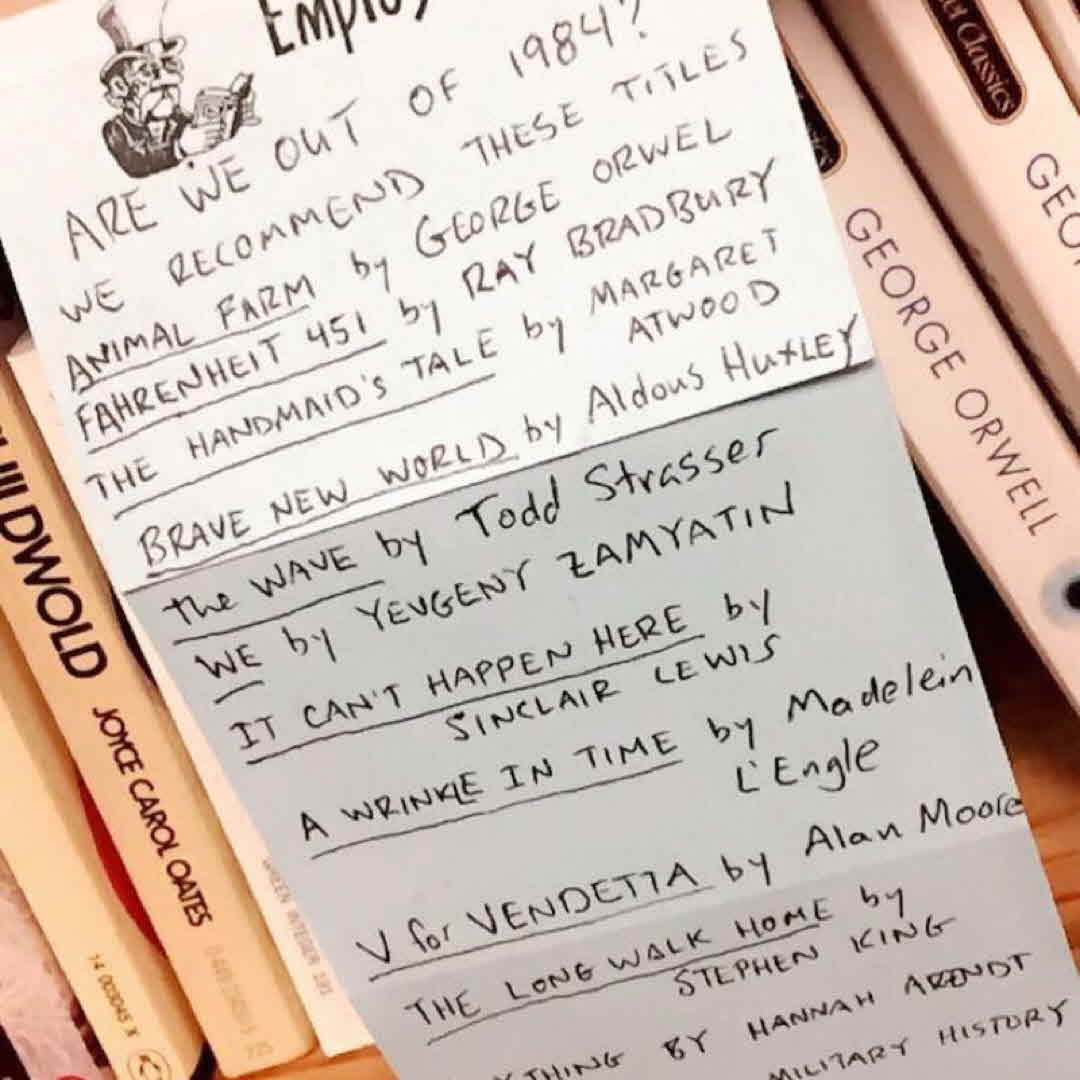 EMPLOY
ARE WE OUT OF 1984?
WE RECOMMEND THESE TITLES
ANIMAL FARM by GEORGE ORWEL
FAHRENHEIT 451 by RAY BRADBURY
THE HANDMAID'S TALE by MARGARET
ATWOOD
BRAVE NEW WORLD by Aldous HUXLEY
the WAVE by Todd Strasser
WE by YEVGENY ZAMYATIN
IT CAN'T HAPPEN HERE by
SINCLAIR LEWIS
A WRINKLE IN TIME by Madelein
L'Engle
V for VENDETTA by Alan Moore
THE LONG WALK HOME by
STEPHEN KING
YTHING BY HANNAH ARENDT
MILITARY HISTORY
WILDWOLD
JOYCE CAROL OATES
14 003045 X
GREEN INTEGER
GEORGE ORWELL
Classics
GEO